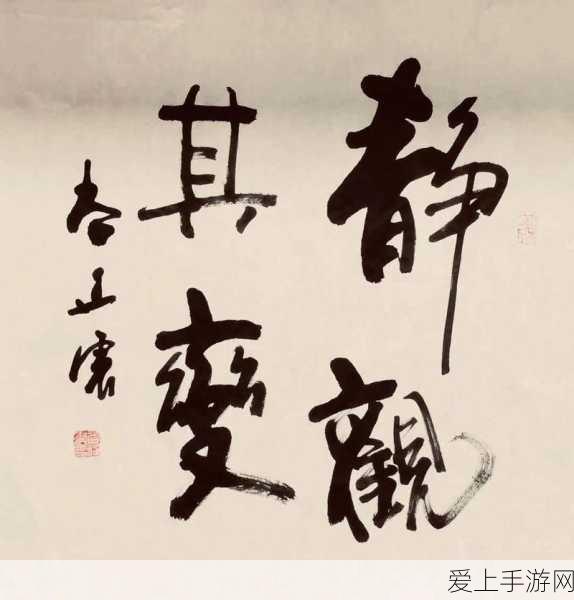 靜觀
其變
爱上手游网